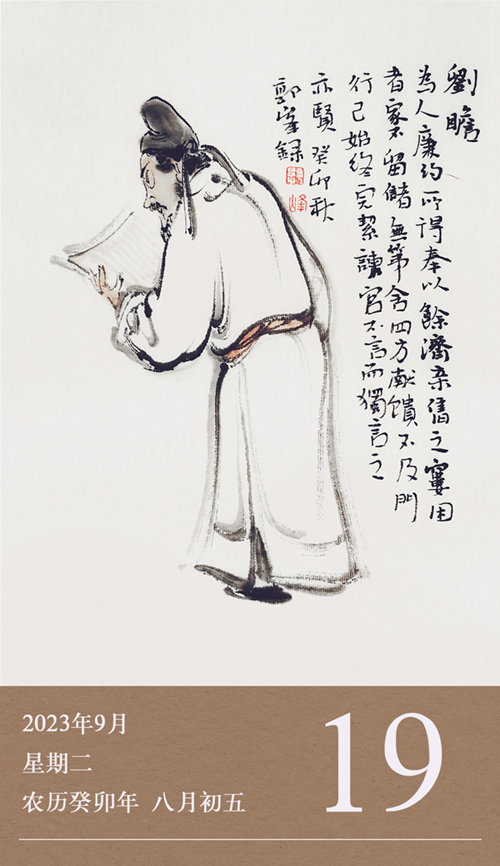 劉瞻
為人廉約所得奉以餘濟亲舊之窶困
者家不留儲無第舍四方献馈不及門
行己始终完絜諫官不言而獨言之
亦賢 癸卯秋
郭峯録
峰
2023年9月
星期二
农历癸卯年 八月初五
19